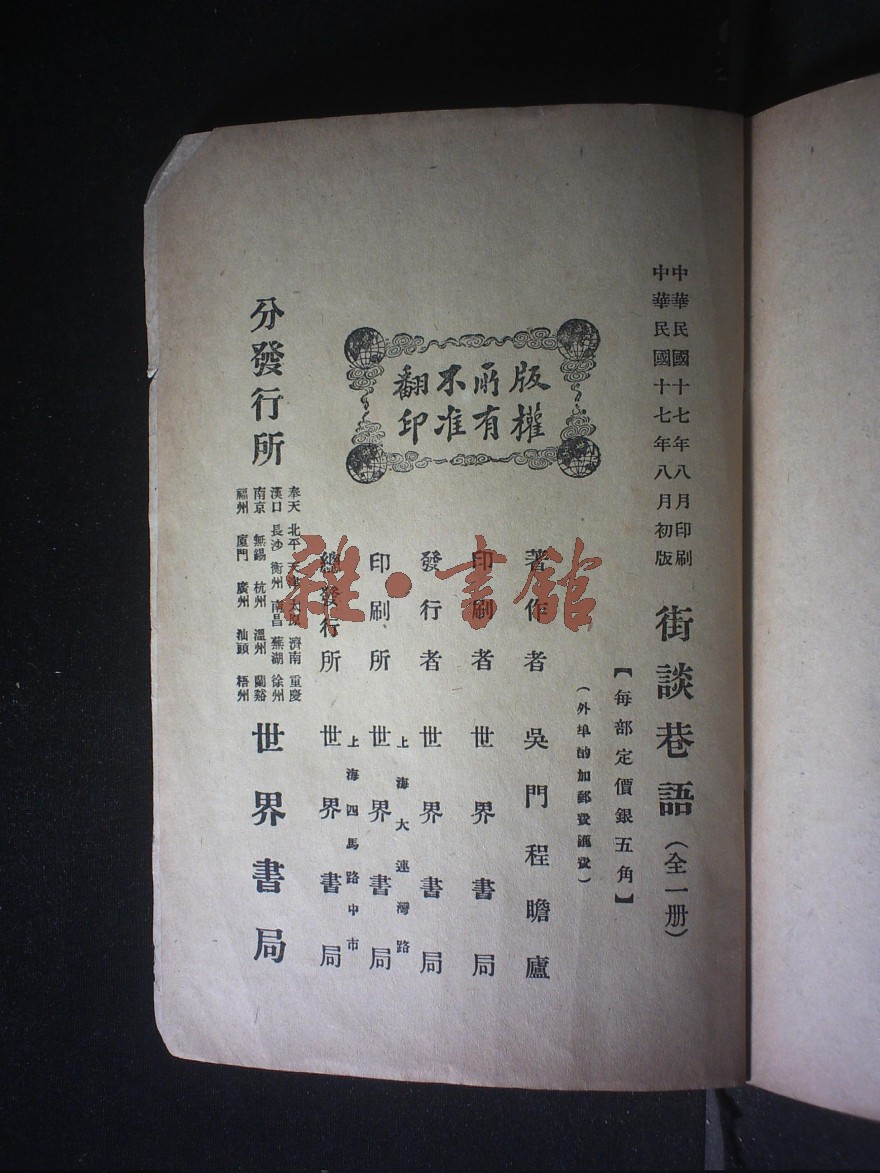 中華民國十七年八月印刷
中華民國十七年八月初版
街談巷語（全一册）
【每部定價銀五角】
（外埠酌加郵費匯費）
著作者 吳門程瞻廬
印刷者 世界書局
發行者 世界書局
上海大連灣路
印刷所 世界書局
上海四馬路中市
總發行所 世界書局
版權
所有
不准
翻印
分發行所
奉天 北平 天津 太原 濟南 重慶
漢口 長沙 衡州 南昌 蕪湖 徐州
南京 無錫 杭州 溫州 蘭谿
福州 廈門 廣州 汕頭 梧州
世界書局
雜·書館